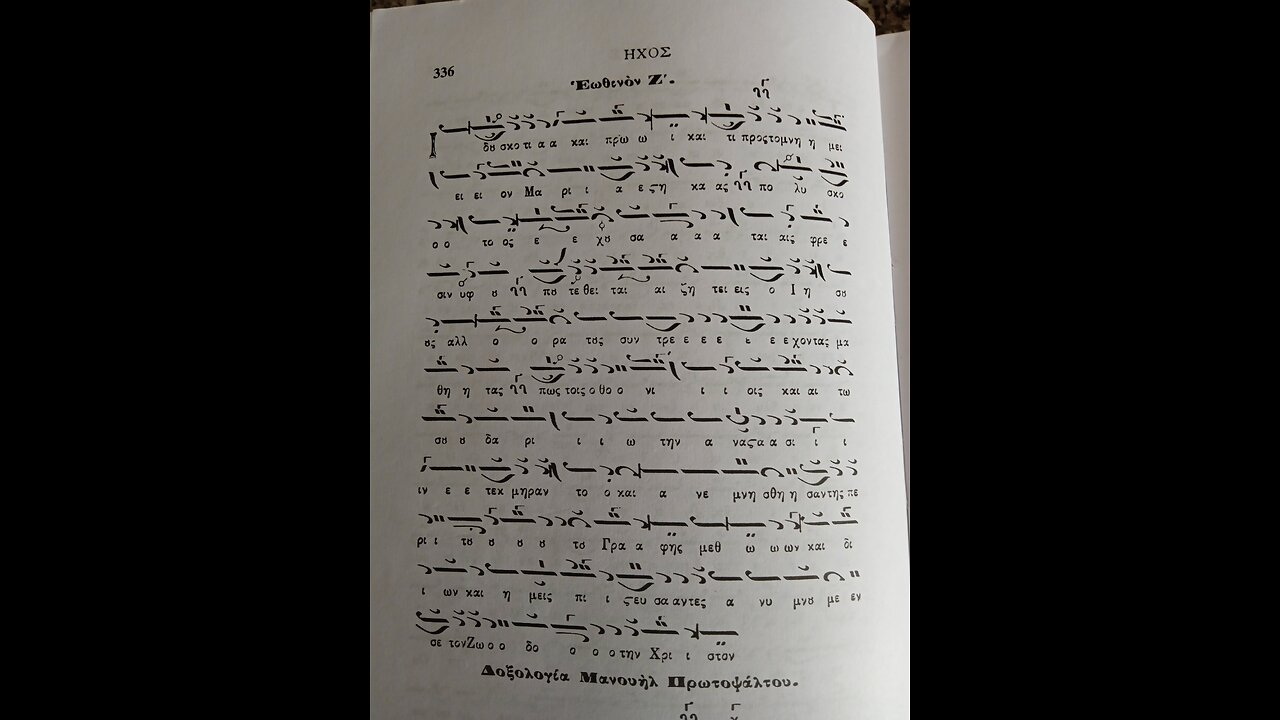 ΗΧΟΣ
336
Ἑωθινὸν Ζʹ.
Ι δȣ σκο τι α α και πρω ω ι και τι προς το μνη η μει
ει ει ον Μα ρι ι α ε ςη κα ας πο λυ σκο
ο ο το ος ε ε χȣ σα α α α ται αις φρε ε
σιν υφ ȣ πȣ τε θει ται αι ζη τει εις ο Ι η σȣ
ȣς αλλ ο ο ρα τȣς συν τρε ε ε ε ε ε ε χοντας μα
θη η τας πως τοις ο θο ο νι ι ι οις και αι τω
σȣ ȣ δα ρι ι ι ω την α να ςα α σι ι ι
ιν ε ε τεκ μηραν το ο και α νε μνη σθη η σαν της πε
ρι ι τȣ ȣ ȣ τȣ Γρα α φης μεθ ω ω ων και δι
ι ων και η μεις πι ι ςευ σα αντες α νυ μνȣ με εν
σε τον Ζω ο ο δο ο ο ο την Χρι ι στον
Δοξολογία Μανουὴλ Πρωτοψάλτου.